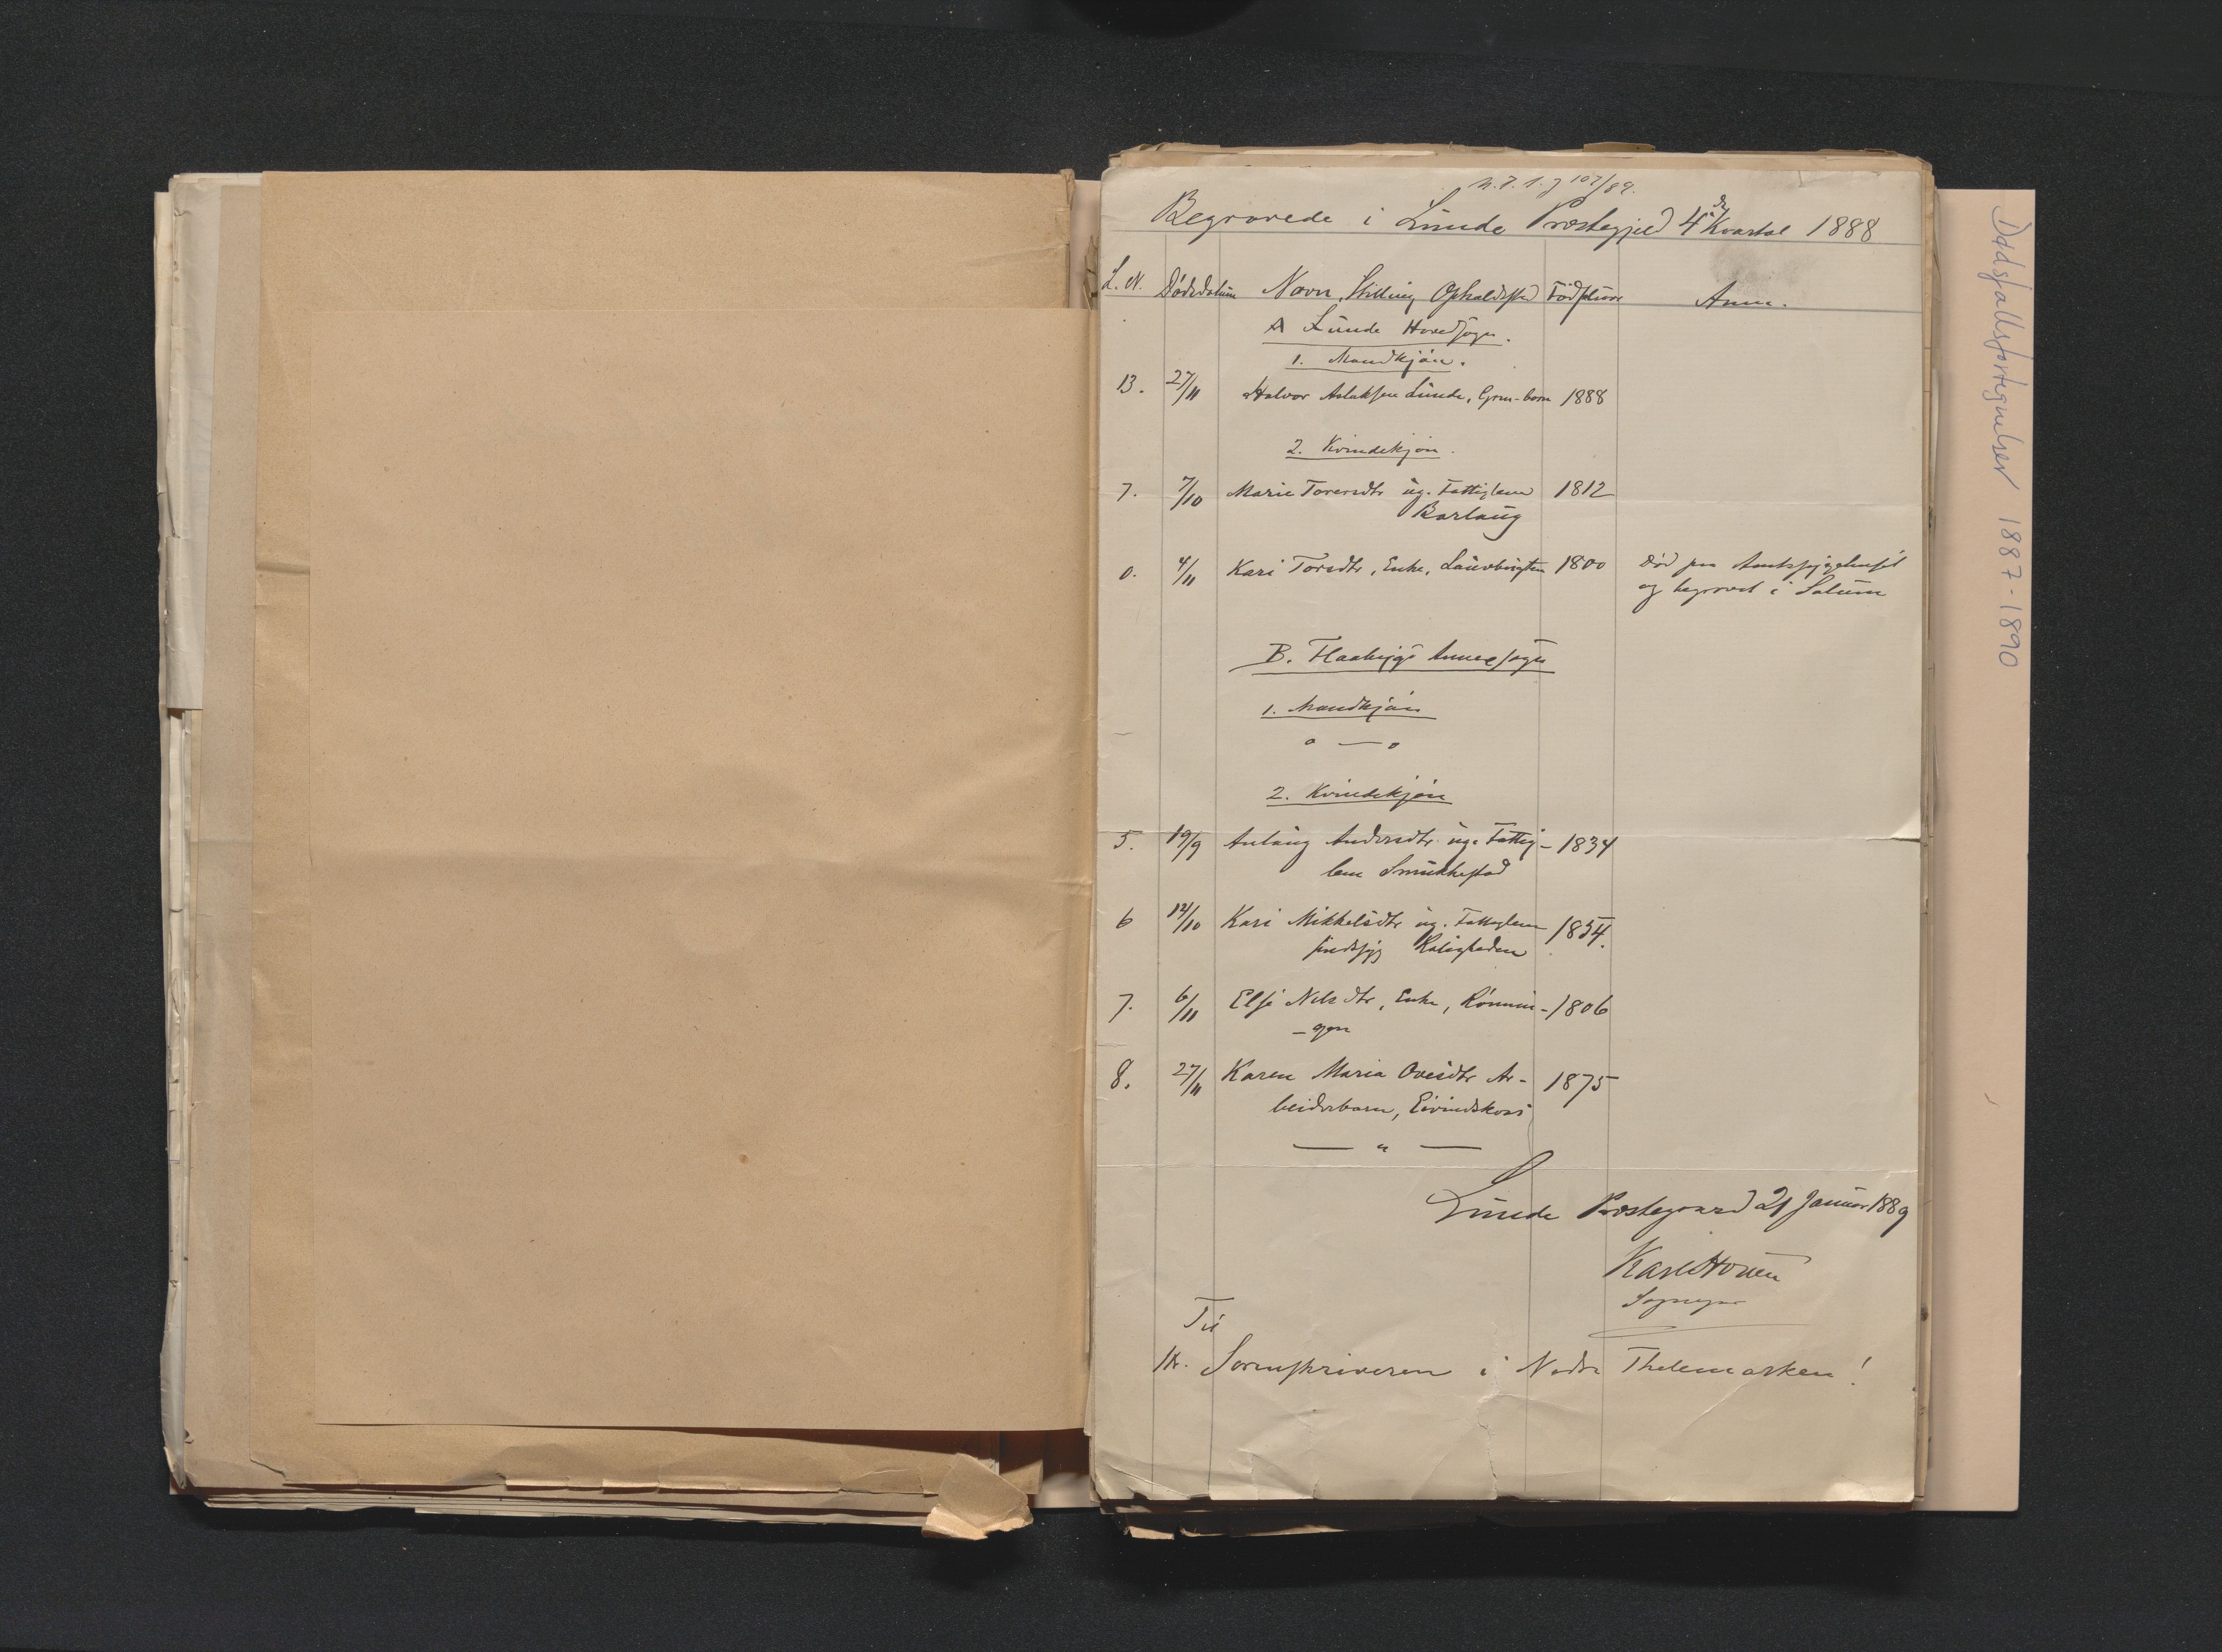 N. T. S. J 107/89.
Begravede i Lunde Præstegjeld 4de Kvartal 1888
L. N. Dødsdatum Navn, Stilling Opholdssted Fødselsaar Anm.
A Lunde Hovedsogn.
1. Mandkjøn.
13. 27/11 Halvor Aslaksen Lunde, Grm-barn 1888
2. Kvindekjøn.
7. 7/10 Marie Toversdtr ug. Fattiglem 1812
Barlaug
0. 4/11 Kari Torsdtr, Enke, 1800 Død paa Amtssygehuset
og begravet i Solum
B. Flaabygd Annexsogn
1. Mandkjøn
" — "
2. Kvindekjøn
5. 19/9 Anlaug Andersdtr. ug. Fattig- 1834
lem Smukkestad
6 12/10 Kari Mikkelsdtr ug. Fattiglem 1854.
sindssyg Roligheden
7. 6/11 Else Nilsdtr, Enke, Rønnin- 1806
-gen
8. 27/11 Karen Maria Ovesdtr Ar- 1875
beiderbarn, Eivindskaas
— " —
Lunde Præstegaard 21 Januar 1889
Karl Houen
Sognepr
Til
Hr. Sorenskriveren i Nedre Thelemarken!
Dødsfallsfortegnelser 1887-1890